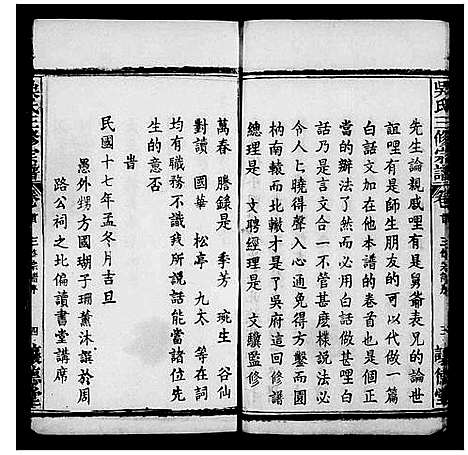 吳氏三修宗譜
先生論親戚哩有是舅爺表兄的論世
誼哩有是師生朋友的可以代做一篇
白話文加在他本譜的卷首也不過適
當的辦法了然必用白話文甚哩白
話乃是言文合一不管甚麽樣説法必
令人上曉得聲入心通免得方鑿而圓
枘南轅而北轍才是了吳府這回修譜
總理是　文聘經理是　文驥監修
萬春　謄錄是　季芳　琬生　谷仙
對讀　國華　松亭　九太　等在詞
均有職務不識我所説話能當諸位先
生的意否
旹
民國十七年孟冬月吉旦
愚外甥方國瑚子珊薰沐譔於周
路公祠之北偏讀書堂講席
四